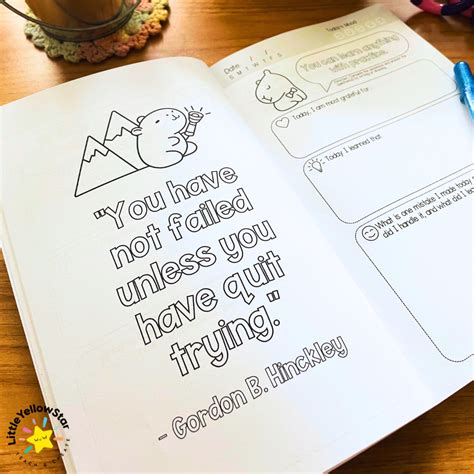 "You have
not failed
unless you
have quit
trying."
- Gordon B. Hinckley
Date / /
S M T W T F S
Today's Mood
You can learn anything
with practice.
Today, I am most grateful for
Today I learned that
What is one mistake I made today
did I handle it, and what did I lea
LittleYellowStar